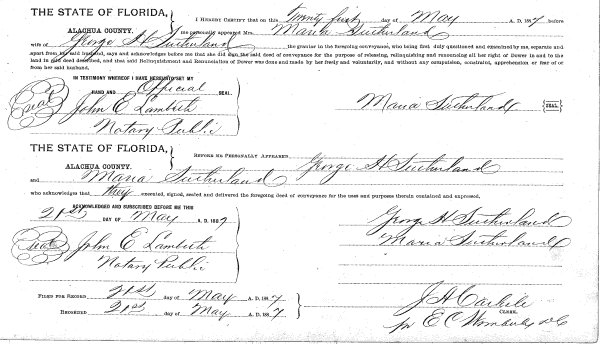 THE STATE OF FLORIDA,
ALACHUA COUNTY.
I HEREBY CERTIFY that on this twenty first day of May A. D. 1887, before
me personally appeared Mrs. Maria Sutherland
wife of George H Sutherland the grantor in the foregoing conveyance, who being first duly questioned and examined by me, separate and
apart from her said husband, says and acknowledges before me that she did execute the said deed of conveyance for the purpose of releasing, relinquishing and renouncing all her right of Dower in and to the
land in said deed described, and that said Relinquishment and Renunciation of Dower was done and made by her freely and voluntarily, and without any compulsion, constraint, apprehension or fear of or
from her said husband.
IN TESTIMONY WHEREOF I HAVE HEREUNTO SET MY
HAND AND Official SEAL.
Seal John E Lambeth
Maria Sutherland SEAL.
Notary Public
THE STATE OF FLORIDA,
ALACHUA COUNTY.
BEFORE ME PERSONALLY APPEARED George H Sutherland
and Maria Sutherland
who acknowledges that they executed, signed, sealed and delivered the foregoing deed of conveyance for the uses and purposes therein contained and expressed.
ACKNOWLEDGED AND SUBSCRIBED BEFORE ME THIS
21st DAY OF May A. D. 1887
George H Sutherland
Seal John E Lambeth
Maria Sutherland
Notary Public
FILED FOR RECORD 21st day of May A. D. 1887
RECORDED 21st day of May A. D. 1887
J A Carlile
CLERK.
per E C